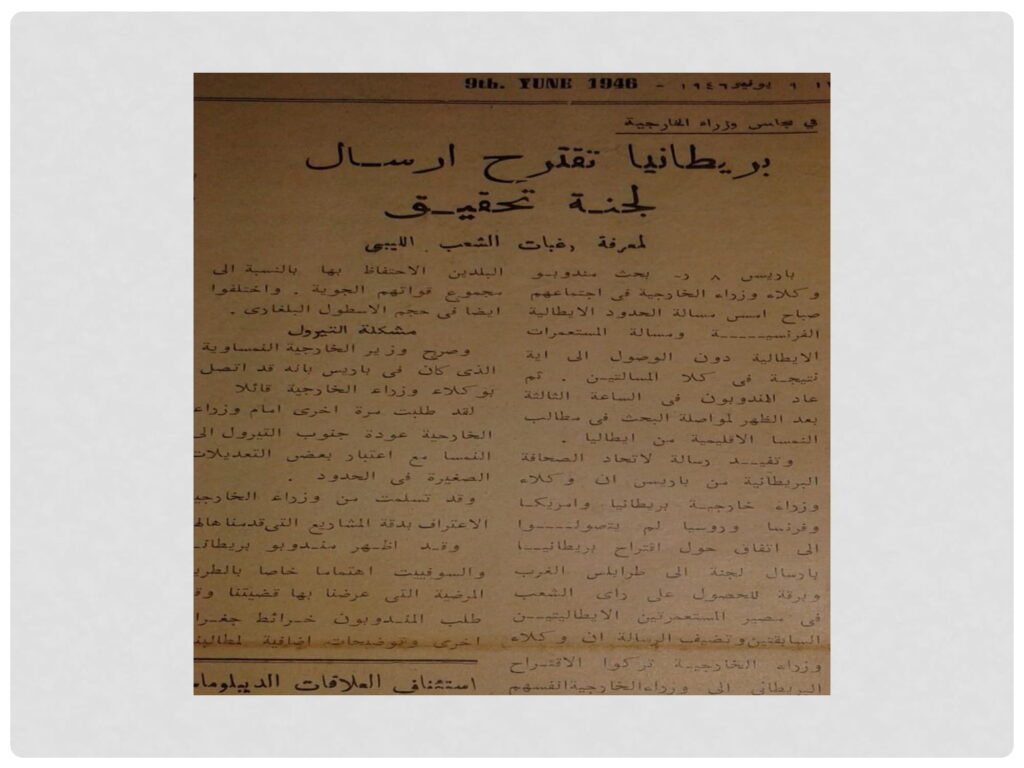 9th. YUNE 1946 - ٩ يونيو ١٩٤٦
في مجلس وزراء الخارجية
بريطانيا تقترح ارسال
لجنة تحقيق
لمعرفة رغبات الشعب الليبى
باريس ٨ ر- بحث مندوبو
وكلاء وزراء الخارجية فى اجتماعهم
صباح امس مسالة الحدود الايطالية
الفرنسية ومسالة المستعمرات
الايطالية دون الوصول الى اية
نتيجة فى كلا المسالتين . ثم
عاد المندوبون فى الساعة الثالثة
بعد الظهر لمواصلة البحث فى مطالب
النمسا الاقليمية من ايطاليا .
وتفيد رسالة لاتحاد الصحافة
البريطانية من باريس ان وكلاء
وزراء خارجية بريطانيا وامريكا
وفرنسا وروسيا لم يتصولوا
الى اتفاق حول اقتراح بريطانيا
بارسال لجنة الى طرابلس الغرب
وبرقة للحصول على راى الشعب
فى مصير المستعمرتين الايطاليتين
السابقتين وتضيف الرسالة ان وكلاء
وزراء الخارجية تركوا الاقتراح
البريطانى الى وزراء الخارجية انفسهم
البلدين الاحتفاظ بها بالنسبة الى
مجموع قواتهم الجوية . واختلفوا
ايضا فى حجم الاسطول البلغارى .
مشكلة التيرول
وصرح وزير الخارجية النمساوية
الذى كان فى باريس بانه قد اتصل
بوكلاء وزراء الخارجية قائلا
لقد طلبت مرة اخرى امام وزراء
الخارجية عودة جنوب التيرول الى
النمسا مع اعتبار بعض التعديلات
الصغيرة فى الحدود .
وقد تسلمت من وزراء الخارجي
الاعتراف بدقة المشاريع التى قدمناها
وقد اظهر مندوبو بريطان
والسوفييت اهتماما خاصا بالطري
المرضية التى عرضنا بها قضيتنا وق
طلب المندوبون خرائط جغرا
اخرى وتوضيحات اضافية لمطالبن
استئناف العلاقات الديبلوما